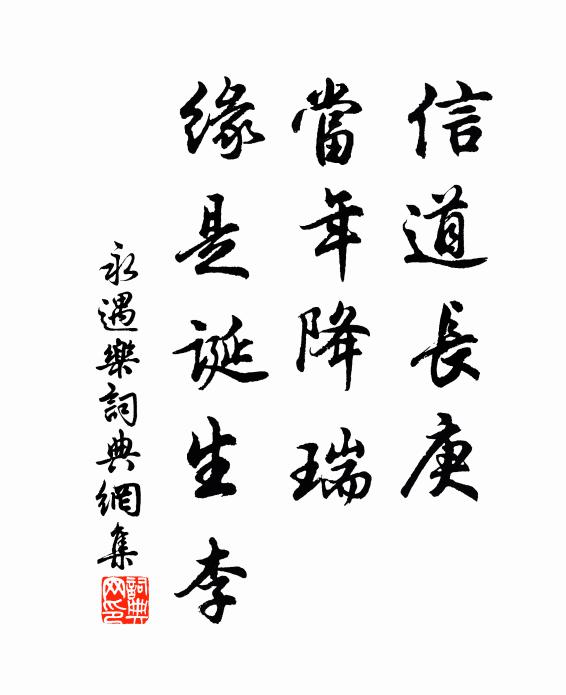 信道長庚
當年降瑞
緣是誕生李
永遇樂詞典網集
詞典
网印